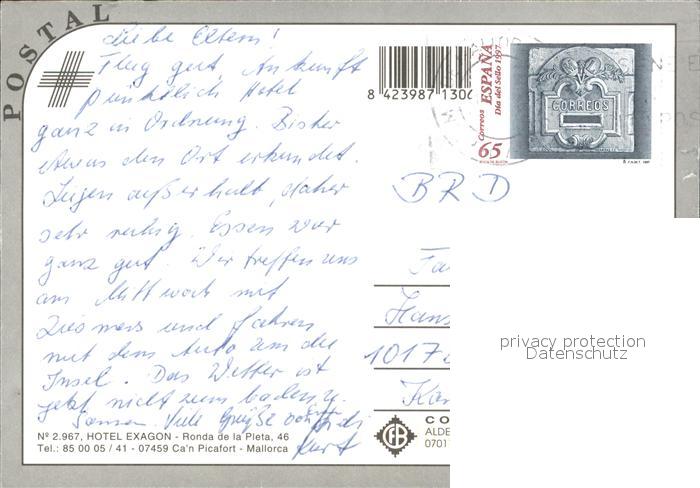 POSTAL
Liebe Eltern!
Flug gut, Ankunft
pünktlich Hotel
ganz in Ordnung. Bisher
etwas den Ort erkundet.
Liegen außerhalb, daher
sehr ruhig. Essen war
ganz gut. Wir treffen uns
am Mittwoch mit
und fahren
mit dem Auto um die
Insel. Das Wetter ist
jetzt nicht zum baden u.
Sonnen. Viele Grüße von
Kurt
Nº 2.967, HOTEL EXAGON - Ronda de la Pleta, 46
Tel.: 85 00 05 / 41 - 07459 Ca'n Picafort - Mallorca
8 423987 1306
Correos ESPAÑA
Día del Sello 1997
65
CORREOS
BRD
Fa
Hans
1017
Kar
privacy protection
Datenschutz
CO
ALDE
0701